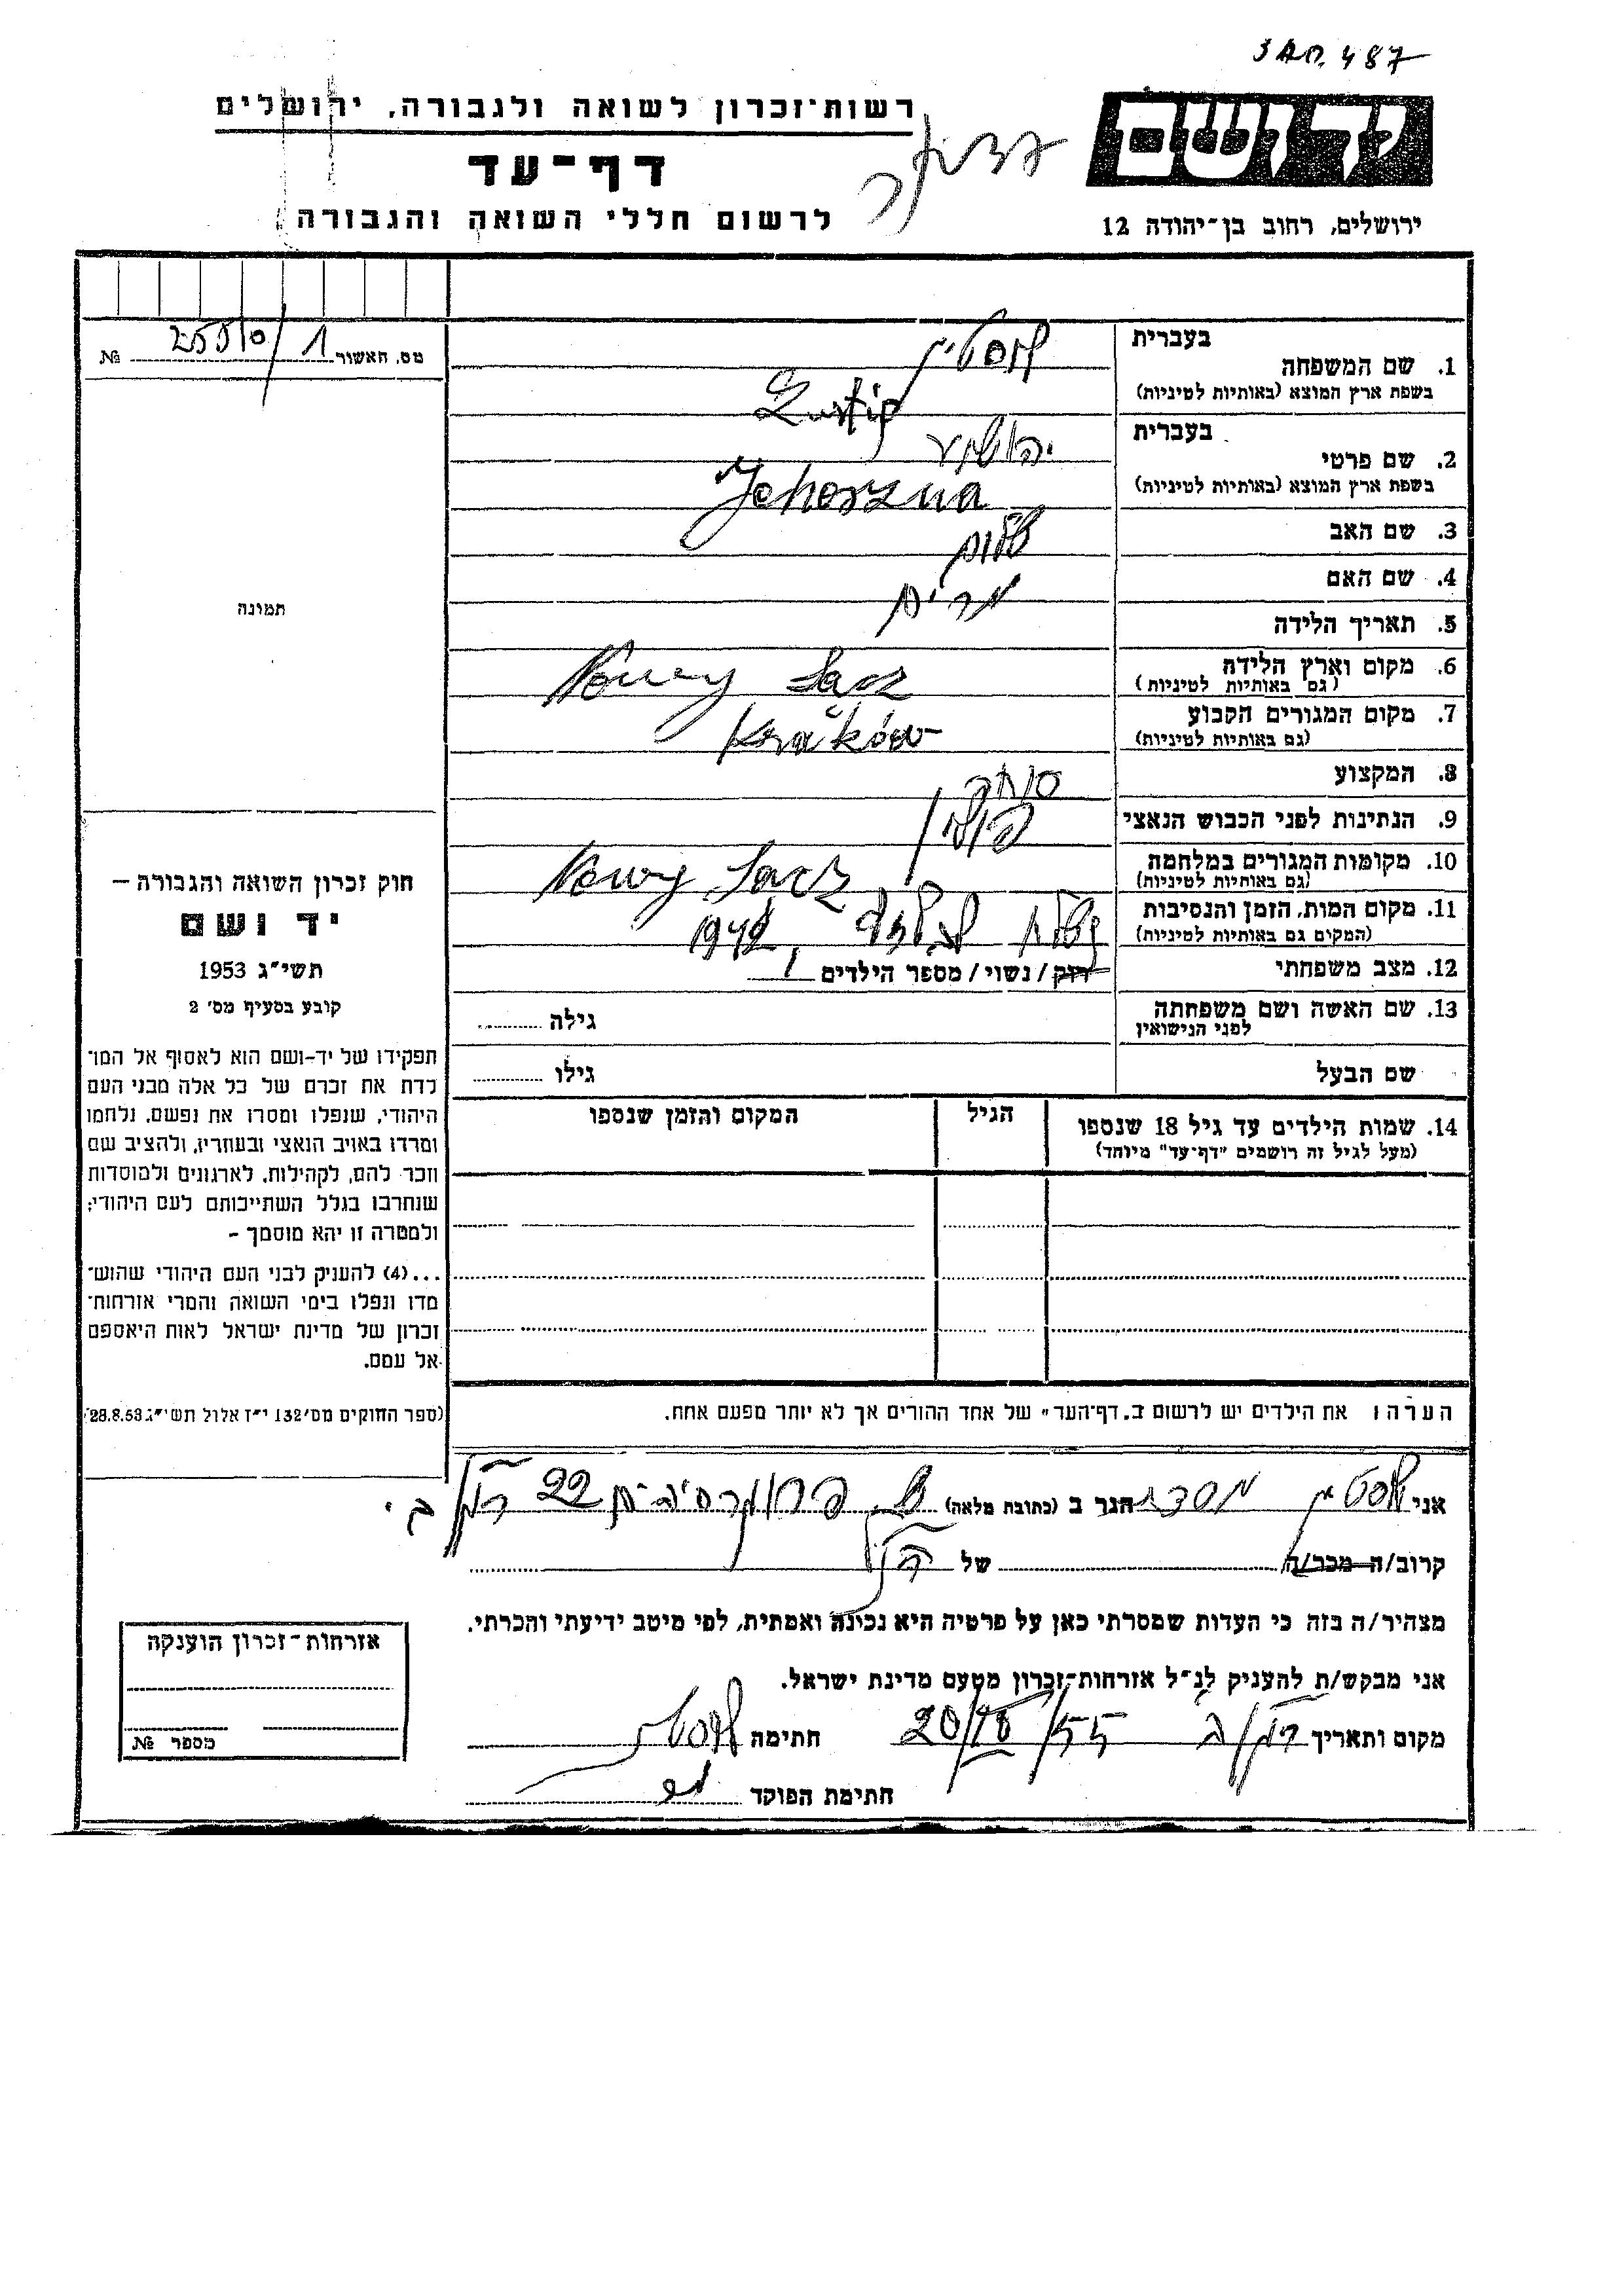 487
יד ושם
רשות־זכרון לשואה ולגבורה, ירושלים
דף־עד
לרשום חללי השואה והגבורה
ירושלים, רחוב בן־יהודה 12
מס. האשור 1/25510 №
בעברית
1. שם המשפחה לוסטיג
בשפת ארץ המוצא (באותיות לטיניות) Lustig
בעברית
2. שם פרטי יהושע
בשפת ארץ המוצא (באותיות לטיניות) Jehoszua
3. שם האב שלום
4. שם האם מרים
5. תאריך הלידה
6. מקום וארץ הלידה Nowy Sącz
(גם באותיות לטיניות)
7. מקום המגורים הקבוע Kraków
(גם באותיות לטיניות)
8. המקצוע סוחר
9. הנתינות לפני הכבוש הנאצי פולני
10. מקומות המגורים במלחמה Nowy Sącz
(גם באותיות לטיניות)
11. מקום המות, הזמן והנסיבות 1942
(המקום גם באותיות לטיניות)
12. מצב משפחתי רוק / נשוי / מספר הילדים 1
13. שם האשה ושם משפחתה גילה
לפני הנישואין
שם הבעל גילו
14. שמות הילדים עד גיל 18 שנספו הגיל המקום והזמן שנספו
(מעל לגיל זה רושמים "דף־עד" מיוחד)
הערה: את הילדים יש לרשום ב„דף־העד" של אחד ההורים אך לא יותר מפעם אחת.
תמונה
חוק זכרון השואה והגבורה —
יד ושם
תשי"ג 1953
קובע בסעיף מס' 2
תפקידו של יד-ושם הוא לאסוף אל המו־
לדת את זכרם של כל אלה מבני העם
היהודי, שנפלו ומסרו את נפשם, נלחמו
ומרדו באויב הנאצי ובעוזריו, ולהציב שם
וזכר להם, לקהילות, לארגונים ולמוסדות
שנחרבו בגלל השתייכותם לעם היהודי;
ולמטרה זו יהא מוסמך -
...(4) להעניק לבני העם היהודי שהוש־
מדו ונפלו בימי השואה והמרי אזרחות־
זכרון של מדינת ישראל לאות היאספם
אל עמם.
(ספר החוקים מס' 132 י"ז אלול תשי"ג 28.8.53)
אני לוסטיג הגר ב (כתובת מלאה) 22
קרוב/ה מכר/ה של הנ"ל
מצהיר/ה בזה כי העדות שמסרתי כאן על פרטיה היא נכונה ואמתית, לפי מיטב ידיעתי והכרתי.
אני מבקש/ת להעניק לנ"ל אזרחות־זכרון מטעם מדינת ישראל.
מקום ותאריך ר"ג 20/10/55 חתימה לוסטיג
חתימת הפוקד
אזרחות־זכרון הוענקה
מספר №